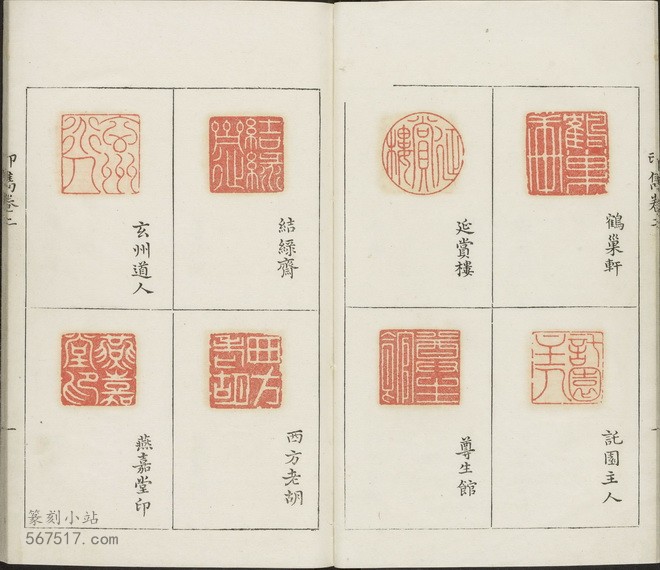 鶴巢軒
託園主人
延賞樓
尊生館
結綠齋
西方老胡
玄州道人
燕嘉堂印
印雋卷二
印雋卷二
篆刻小站
567517.com